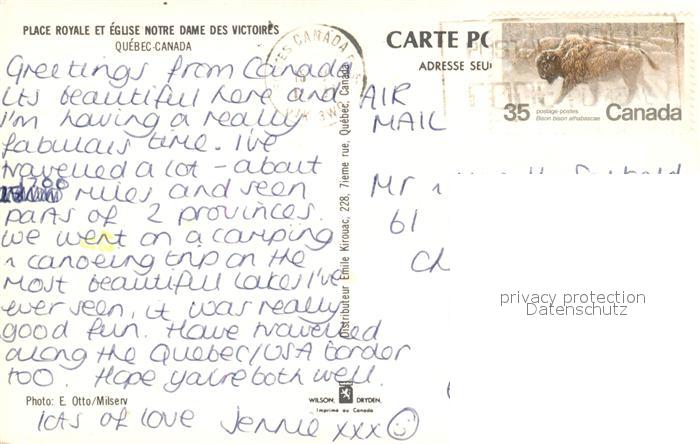 PLACE ROYALE ET ÉGLISE NOTRE DAME DES VICTOIRES
QUÉBEC-CANADA
Greetings from Canada
its beautiful here and
I'm having a really
fabulous time. I've
travelled a lot - about
miles and seen
parts of 2 provinces.
We went on a camping
n canoeing trip on the
most beautiful lakes I've
ever seen, it was really
good fun. Have travelled
along the Quebec/USA border
too. Hope you're both well.
Photo: E. Otto/Milserv
lots of love Jennie xxx
WILSON, DRYDEN,
Imprimé au Canada
Distributeur Emile Kirouac, 228, 7ieme rue, Québec, Canada
CANADA
CARTE PO
ADRESSE SEU
35
postage-postes
Bison bison athabascae
Canada
AIR
MAIL
Mr
61
Ch
privacy protection
Datenschutz